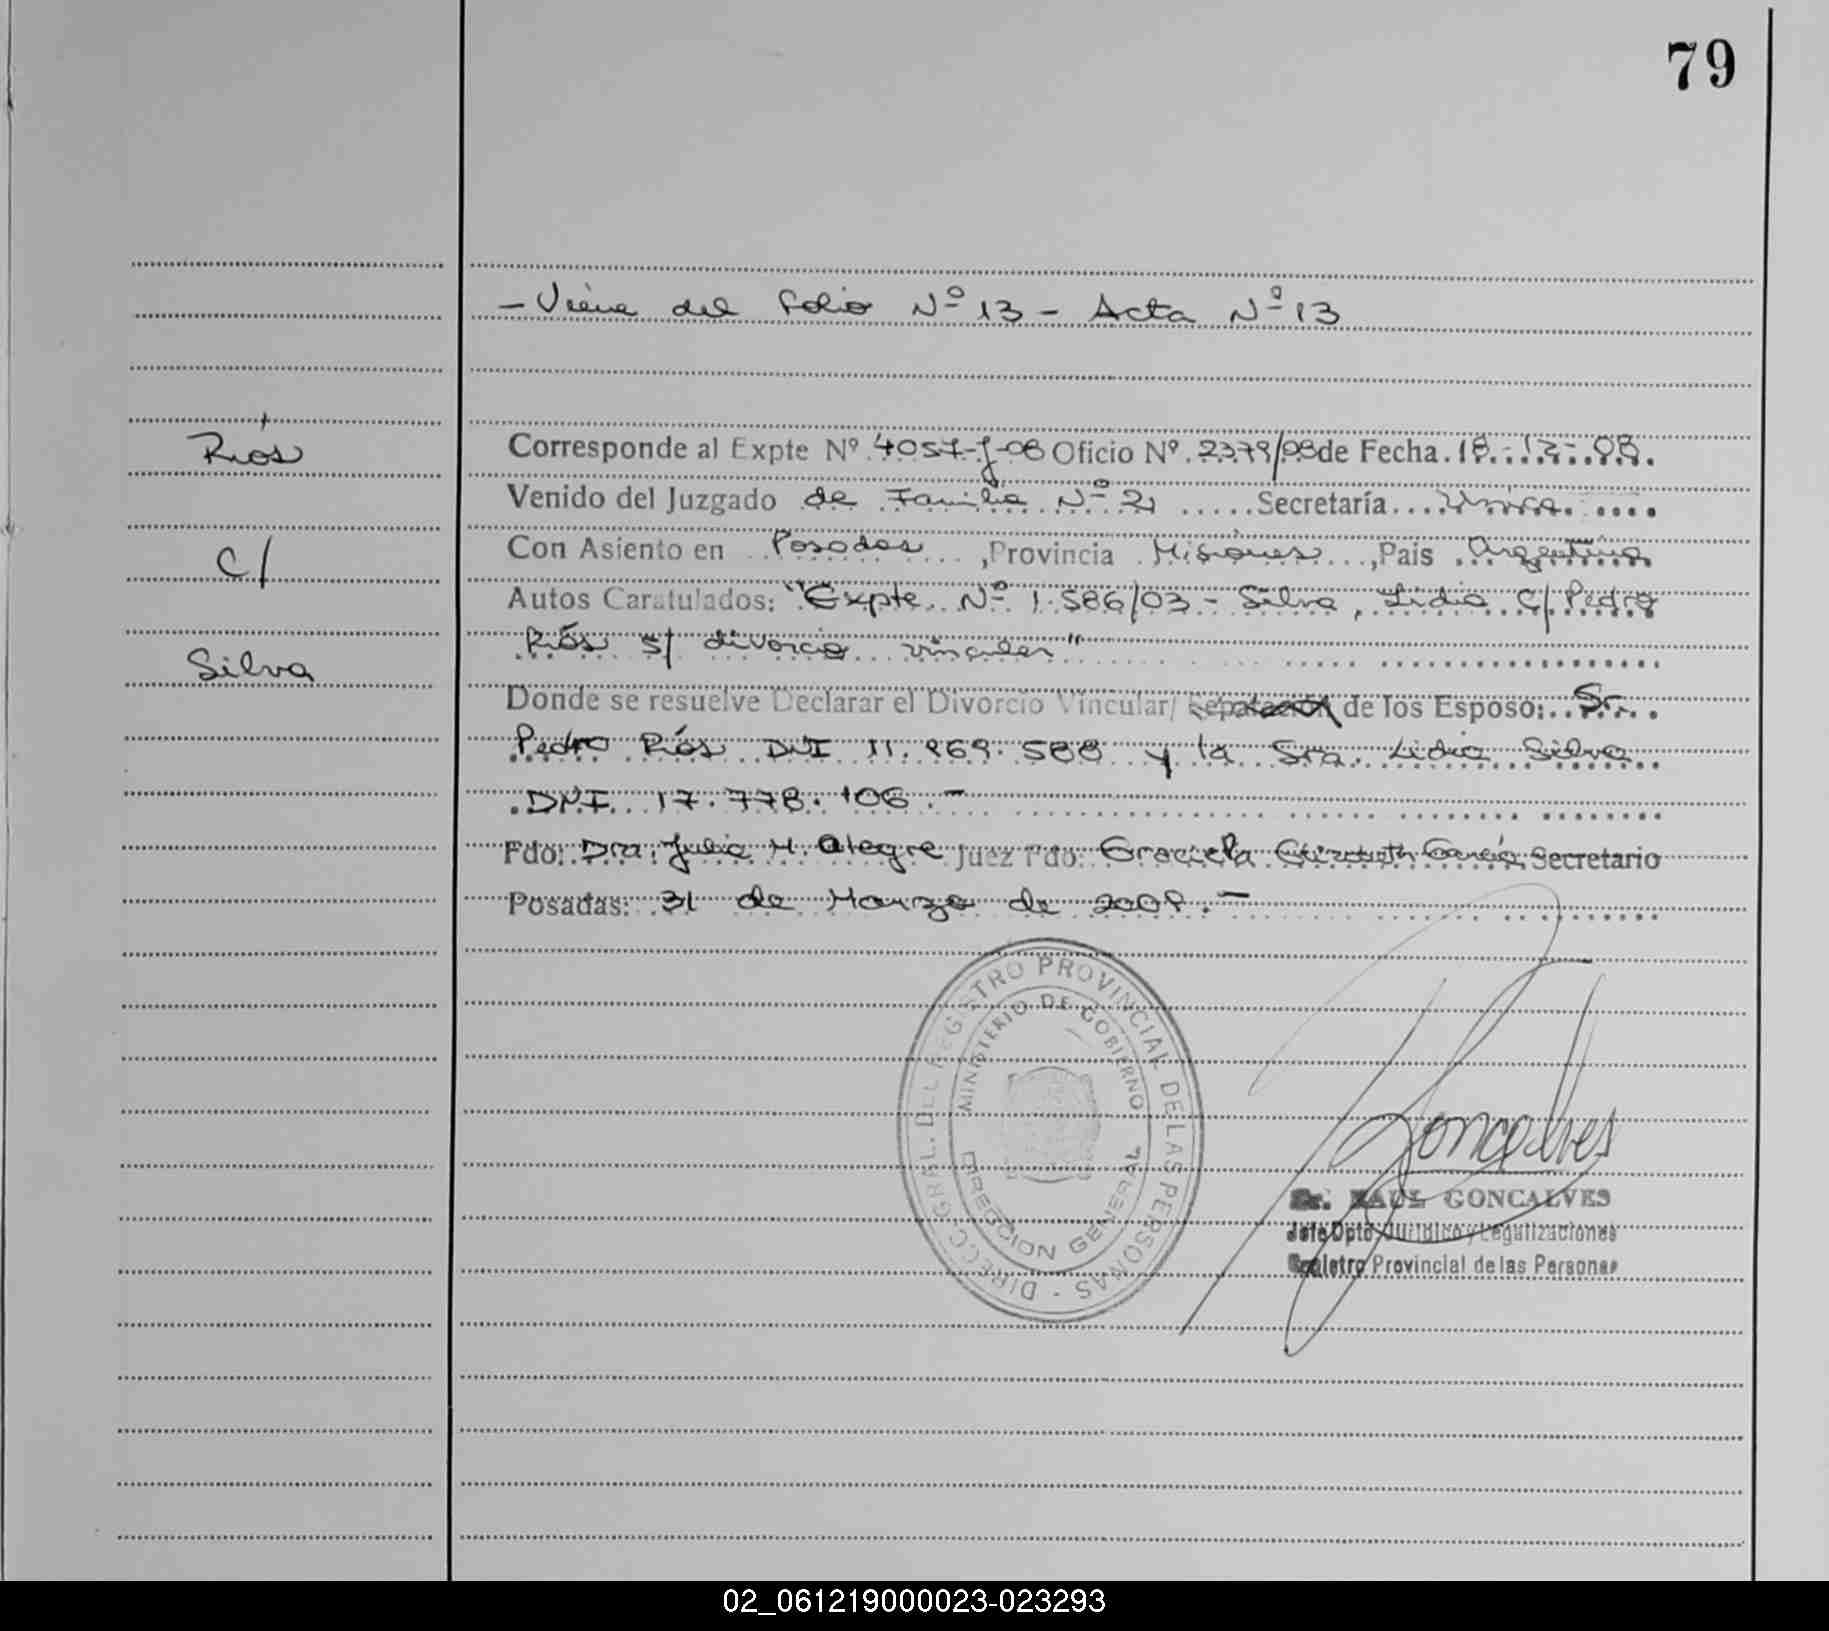 79
- Viene del folio Nº 13 - Acta Nº 13
Ríos
C/
Silva
Corresponde al Expte Nº 4057-J-08 Oficio Nº 2379/08 de Fecha 18-12-08.
Venido del Juzgado de Familia Nº 2 Secretaría Única
Con Asiento en Posadas, Provincia Misiones, País Argentina
Autos Caratulados: "Expte. Nº 1.586/03 - Silva, Lidia C/ Pedro
Ríos s/ divorcio vincular"
Donde se resuelve Declarar el Divorcio Vincular/ Separación de los Esposo: Sr.
Pedro Ríos DNI 11.969.588 y la Sra. Lidia Silva
DNI. 17.778.106.-
Fdo: Dra. Julia H. Alegre Juez Fdo: Graciela Elizabeth García Secretario
Posadas: 31 de Marzo de 2009.-
DIRECC. GRAL. DEL REGISTRO PROVINCIAL DE LAS PERSONAS -
MINISTERIO DE GOBIERNO
DIRECCION GENERAL
Goncalves
Sr. RAUL GONCALVES
Jefe Dpto. Jurídico y Legalizaciones
Registro Provincial de las Personas
02_061219000023-023293